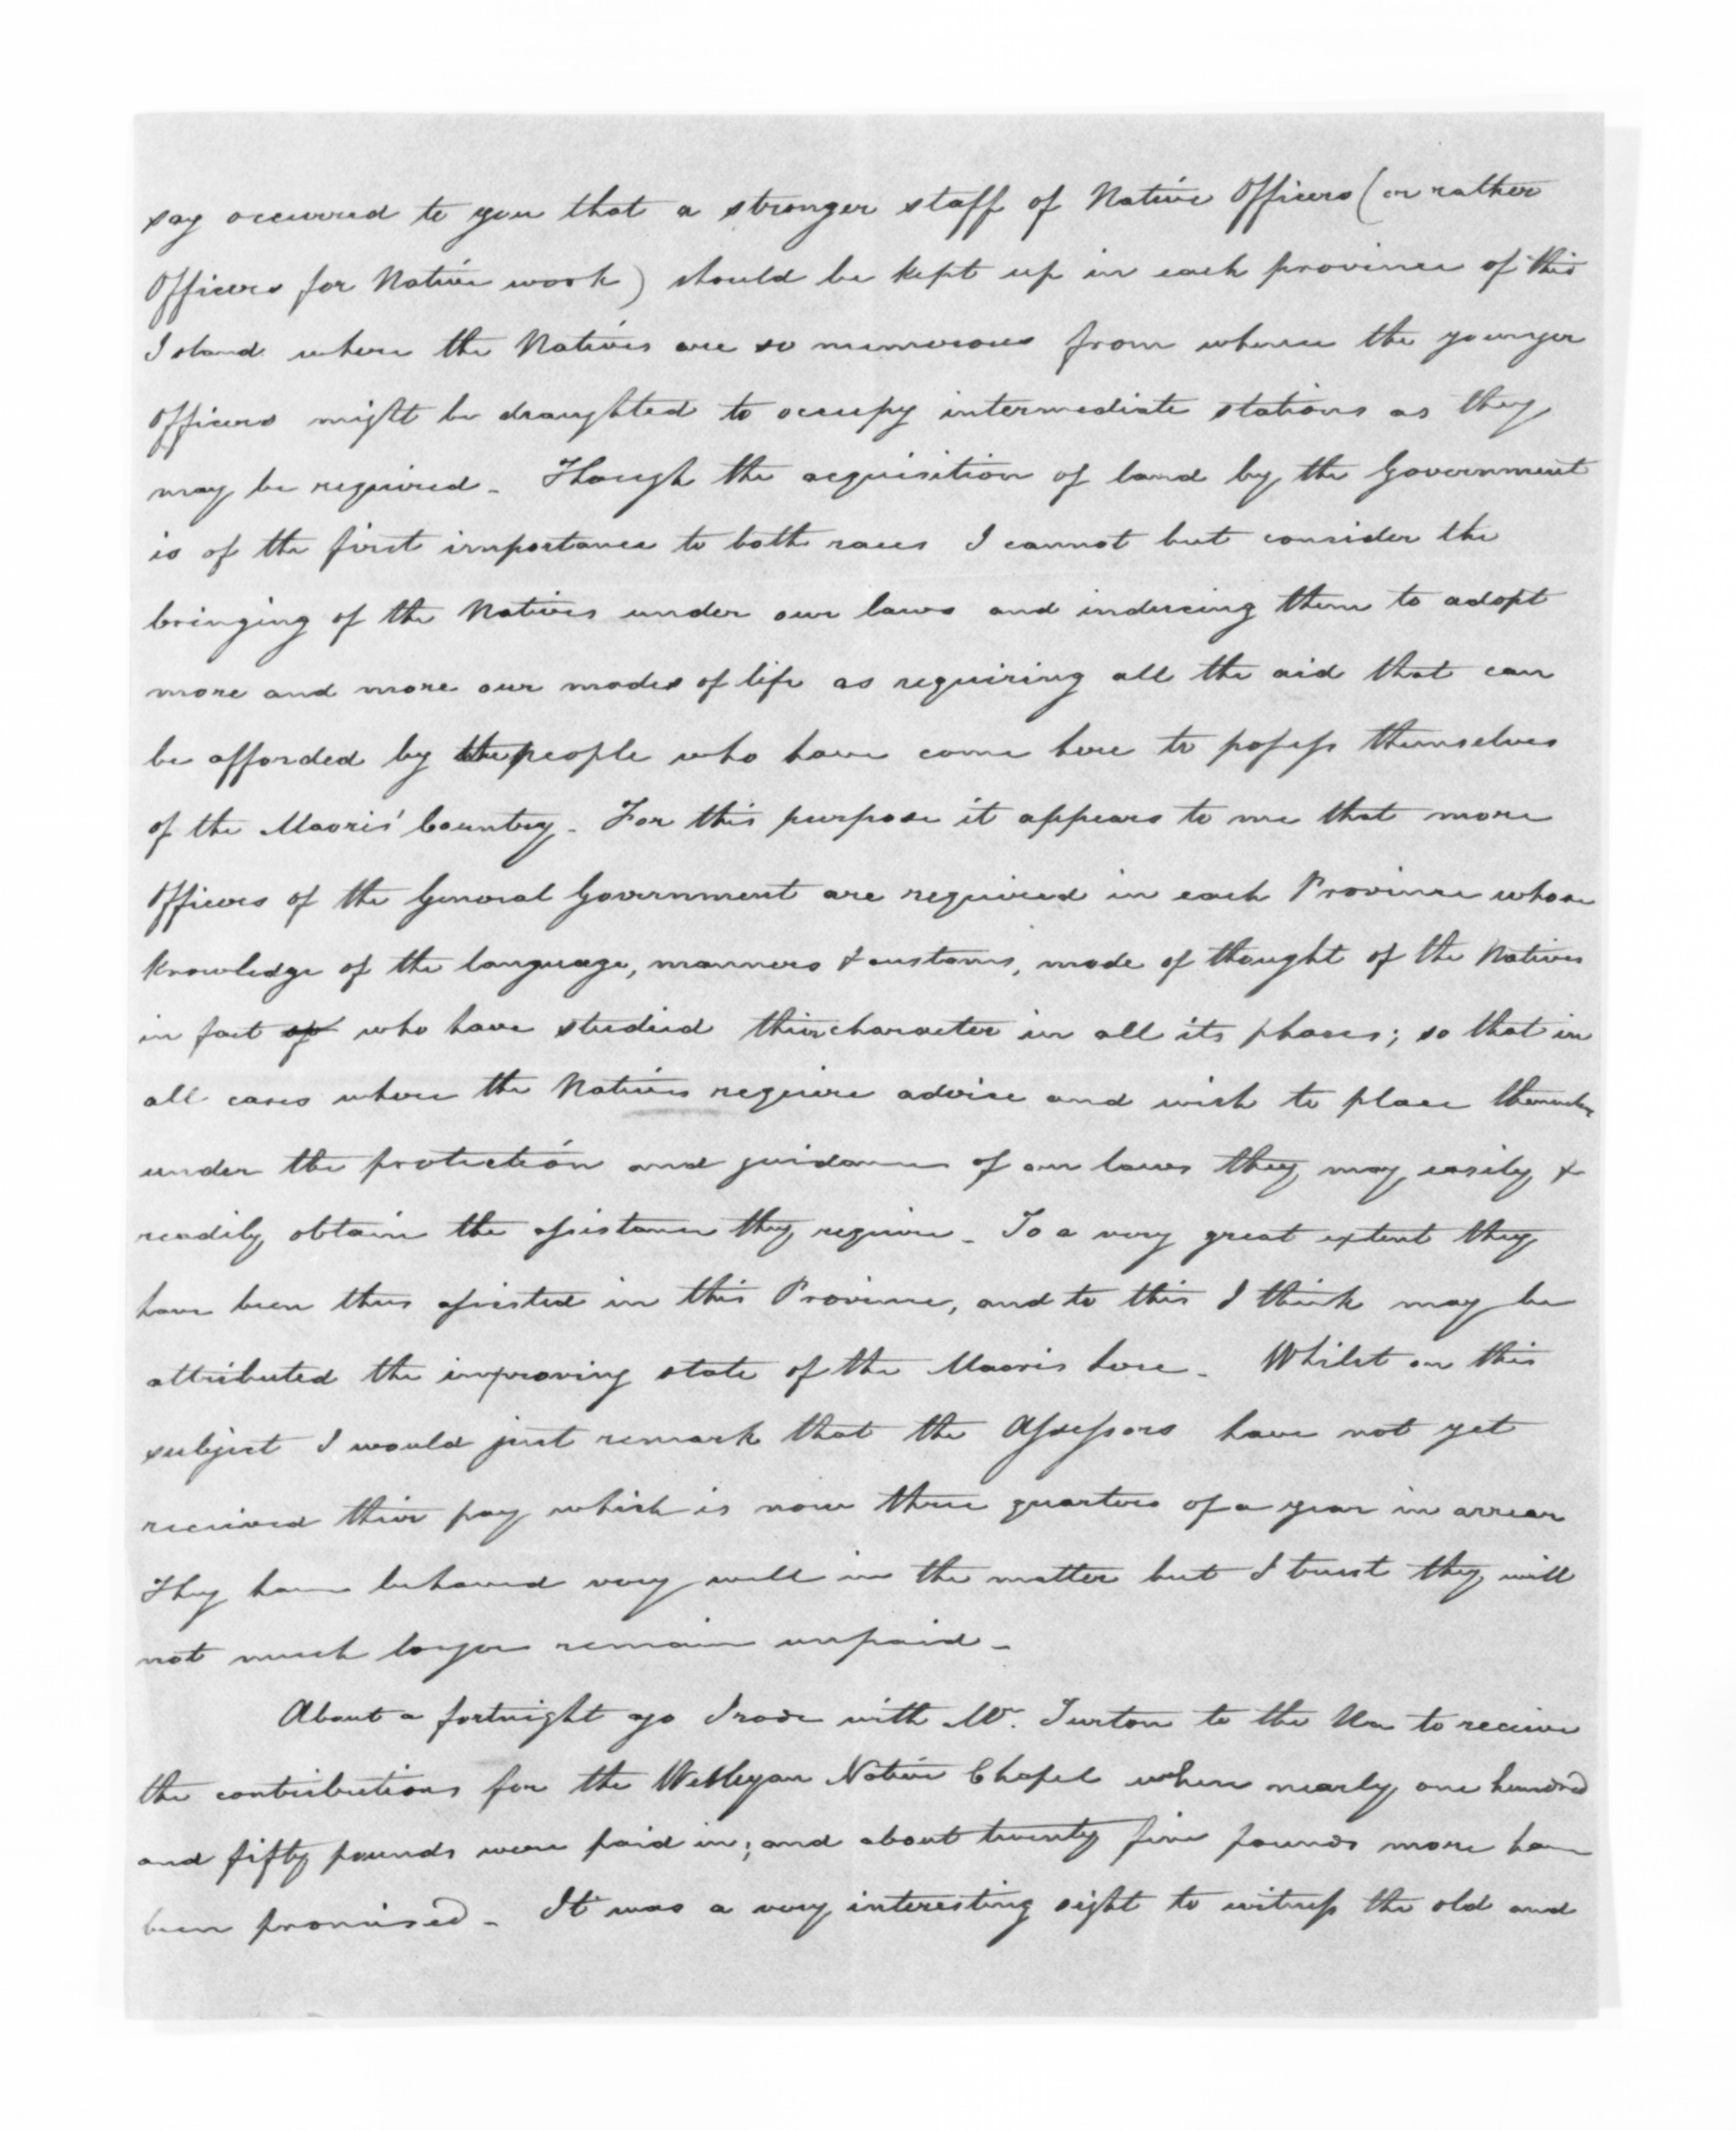 say occurred to you that a stronger staff of Native Officers (or rather
Officers for Native work) should be kept up in each province of this
Island where the Natives are so numerous from whence the younger
Officers might be draughted to occupy intermediate stations as they
may be required - Though the acquisition of land by the Government
is of the first importance to both races I cannot but consider the
bringing of the Natives under our laws and inducing them to adopt
more and more our modes of life as requiring all the aid that can
be afforded by the people who have come here to possess themselves
of the Maoris' Country - For this purpose it appears to me that more
Officers of the General Government are required in each Province whose
knowledge of the language, manners & customs, mode of thought of the Natives
in fact of who have studied their character in all its phases; so that in
all cases where the Natives require advise and wish to place themselves
under the protection and guidance of our laws they may easily &
readily obtain the assistance they require - To a very great extent they
have been thus assisted in this Province, and to this I think may be
attributed the improving state of the Maoris here - Whilst on this
subject I would just remark that the Assessors have not yet
received their pay which is now three quarters of a year in arrear
They have behaved very well in the matter but I trust they will
not much longer remain unpaid -
About a fortnight ago I rode with Mr. Turton to the Ua to receive
the contributions for the Wesleyan Native Chapel when nearly one hundred
and fifty pounds were paid in; and about twenty five pounds more have
been promised - It was a very interesting sight to witness the old and